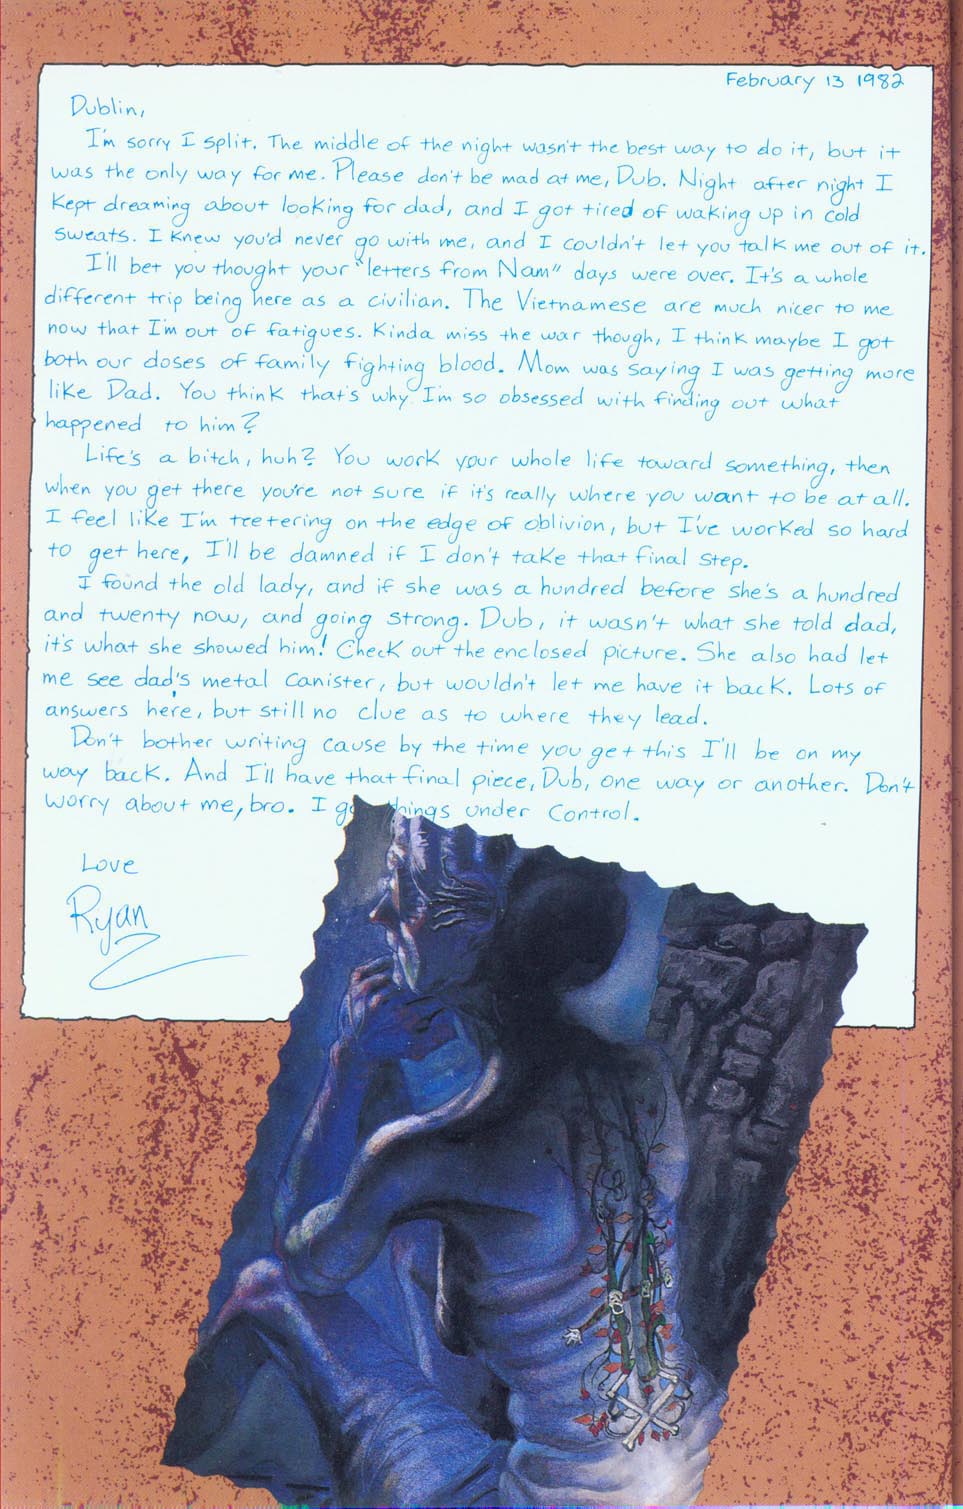 February 13 1982
Dublin,
I'm sorry I split. The middle of the night wasn't the best way to do it, but it
was the only way for me. Please don't be mad at me, Dub. Night after night I
kept dreaming about looking for dad, and I got tired of waking up in cold
sweats. I knew you'd never go with me, and I couldn't let you talk me out of it.
I'll bet you thought your "letters from Nam" days were over. It's a whole
different trip being here as a civilian. The Vietnamese are much nicer to me
now that I'm out of fatigues. Kinda miss the war though, I think maybe I got
both our doses of family fighting blood. Mom was saying I was getting more
like Dad. You think that's why I'm so obsessed with finding out what
happened to him?
Life's a bitch, huh? You work your whole life toward something, then
when you get there you're not sure if it's really where you want to be at all.
I feel like I'm teetering on the edge of oblivion, but I've worked so hard
to get here, I'll be damned if I don't take that final step.
I found the old lady, and if she was a hundred before she's a hundred
and twenty now, and going strong. Dub, it wasn't what she told dad,
it's what she showed him! Check out the enclosed picture. She also had let
me see dad's metal canister, but wouldn't let me have it back. Lots of
answers here, but still no clue as to where they lead.
Don't bother writing cause by the time you get this I'll be on my
way back. And I'll have that final piece, Dub, one way or another. Don't
worry about me, bro. I things under control.
Love
Ryan